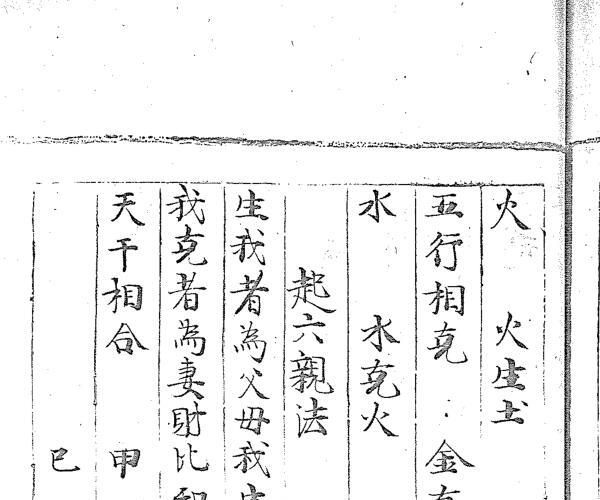 火　火生土
五行相克　金
水　水克火
起六親法
生我者為父母我
我克者為妻財比
天干相合　甲
己